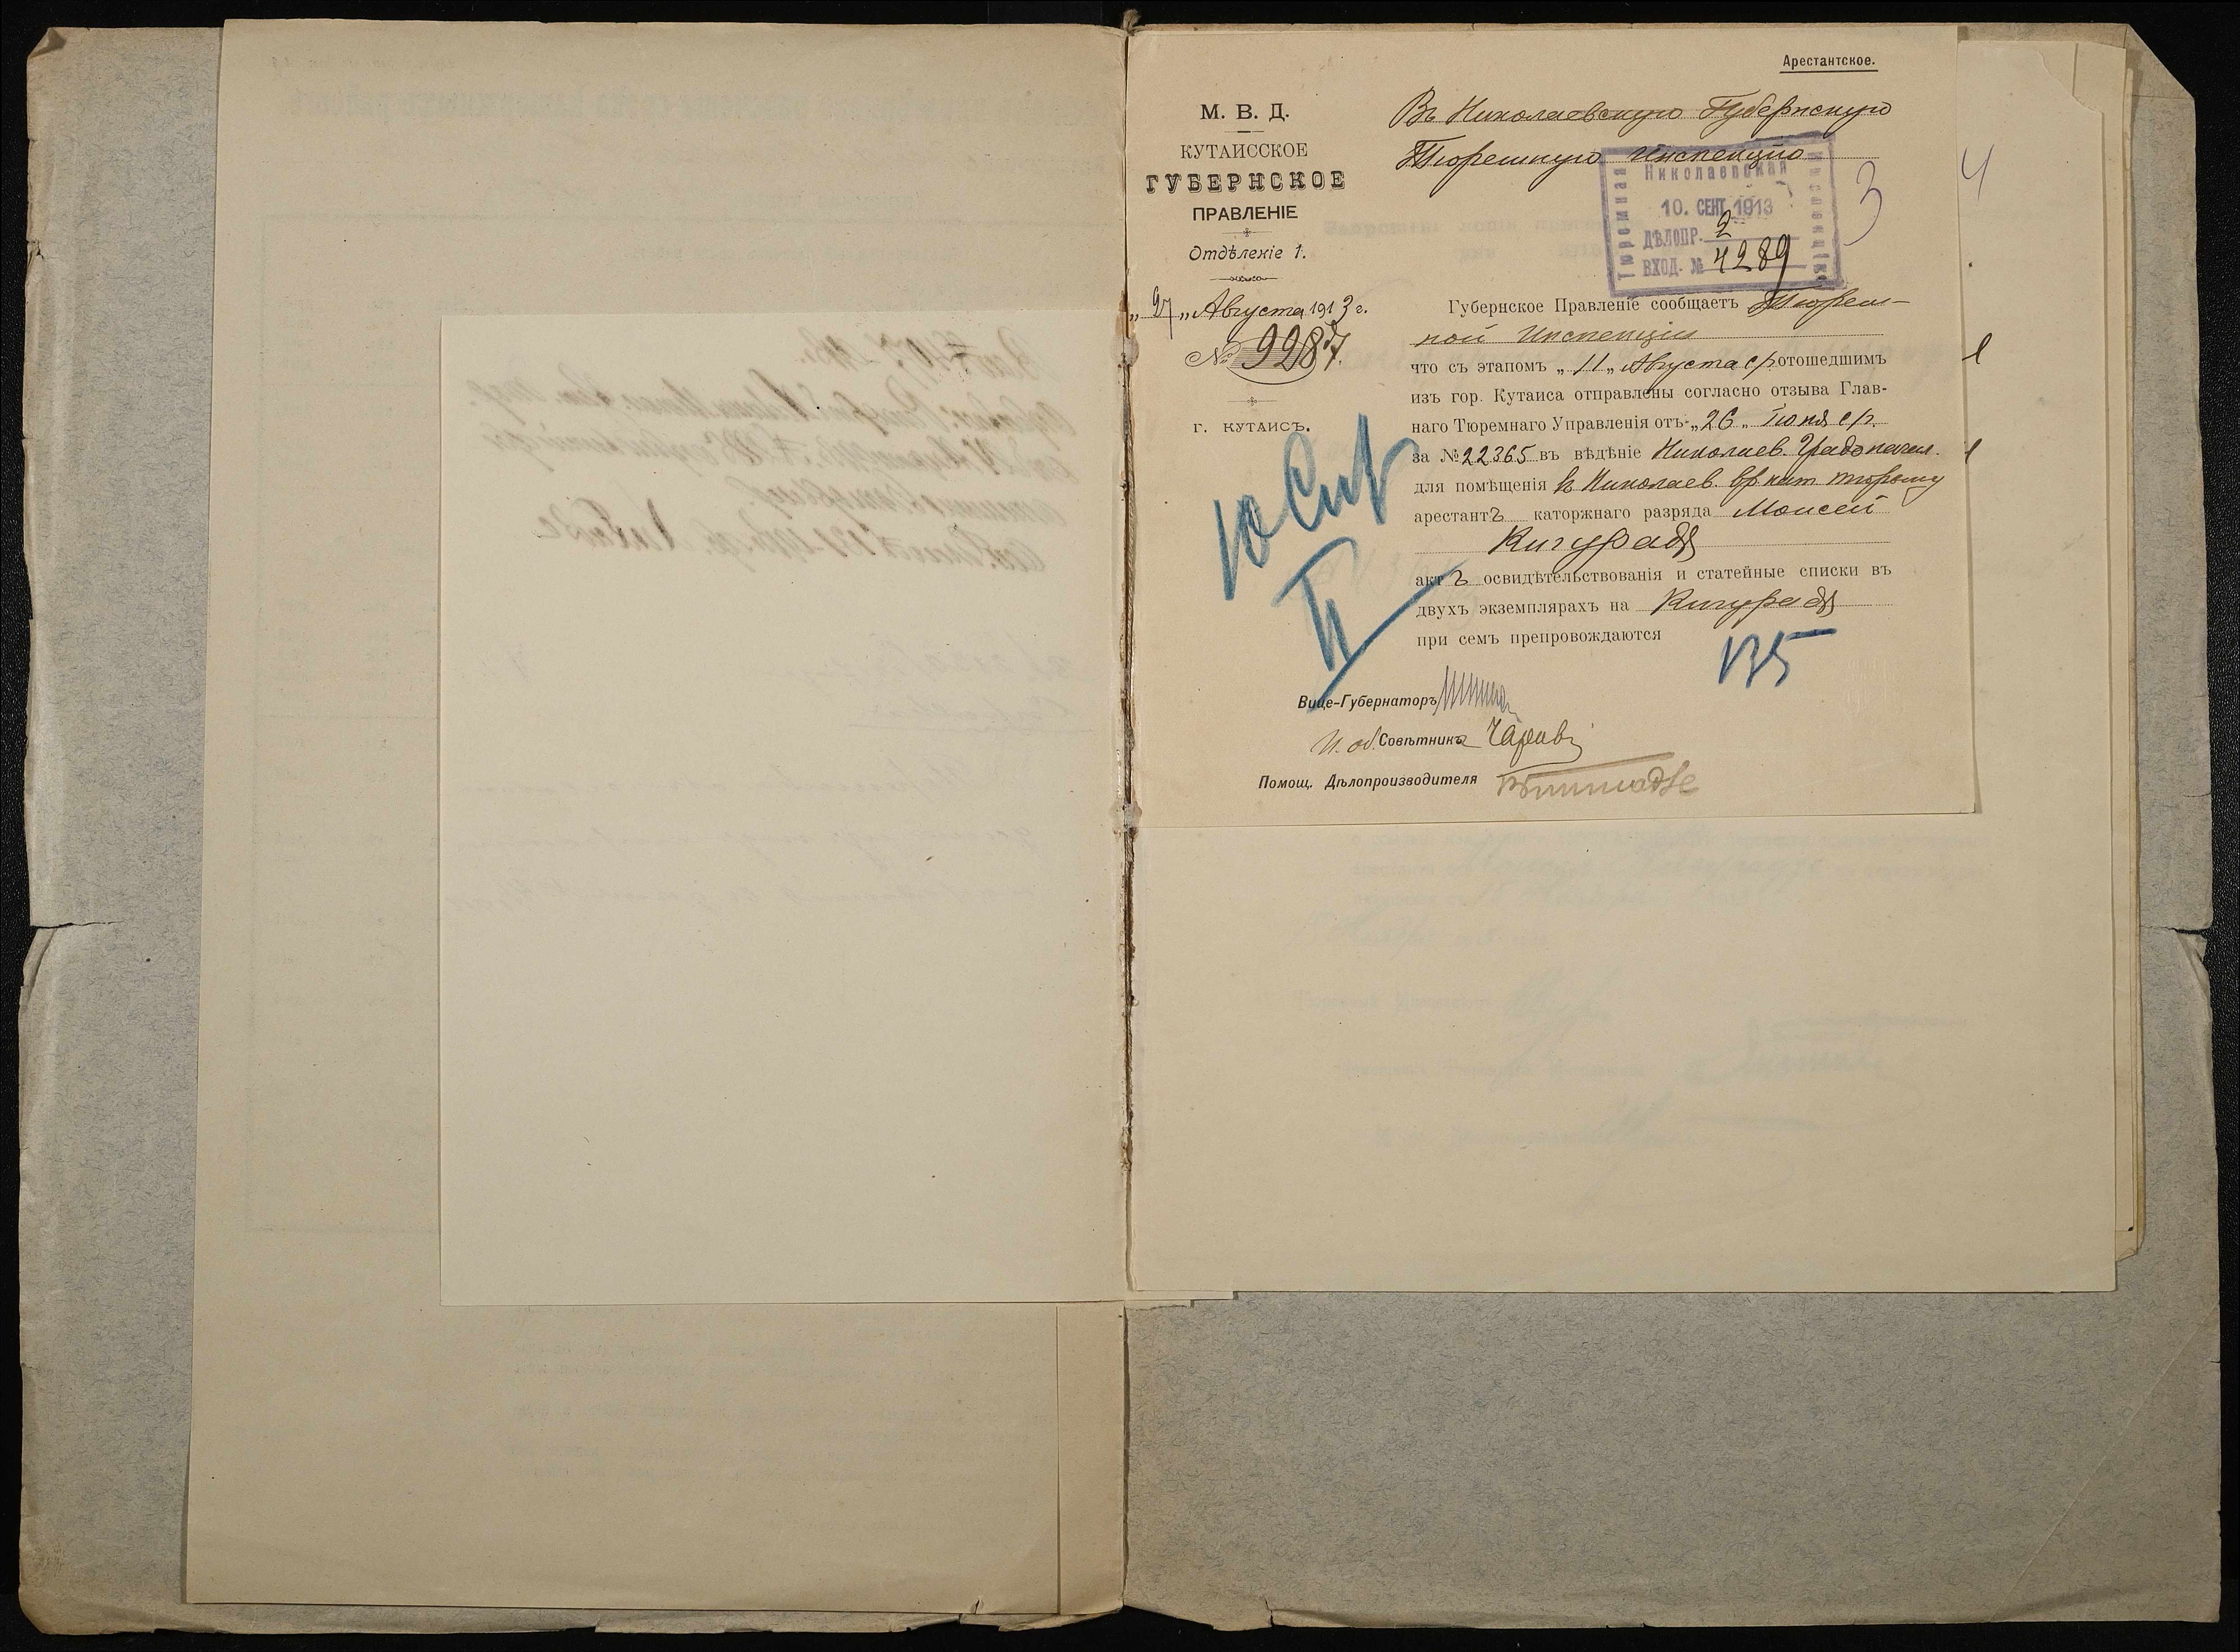 Арестантское.
М. В. Д.
КУТАИССКОЕ
ГУБЕРНСКОЕ
ПРАВЛЕНІЕ
Отдѣленіе 1.
„27„ Августа 1913 г.
№ 9287.
Г. КУТАИСЪ.
Въ Николаевскую Губернскую
Тюремную Инспекцію
Николаевская
Тюремная
Инспекція
10. СЕНТ. 1913
ДѢЛОПР. 2
ВХОД. № 4289
3
4
Губернское Правленіе сообщаетъ Тюрем-
ной Инспекціи
что съ этапомъ „11„ Августа с/г отошедшимъ
изъ гор. Кутаиса отправлены согласно отзыва Глав-
наго Тюремнаго Управленія отъ „26„ Іюня с/г.
за № 22365 въ вѣдѣніе Николаев. Градоначал.
для помѣщенія въ Николаев. вр. кат. тюрьму
арестантъ каторжнаго разряда Моисей
Кигурадзе
актъ освидѣтельствованія и статейные списки въ
двухъ экземплярахъ на Кигурадзе
при семъ препровождаются
II
135
Вице-Губернаторъ
И. об. Совѣтника
Помощ. Дѣлопроизводителя